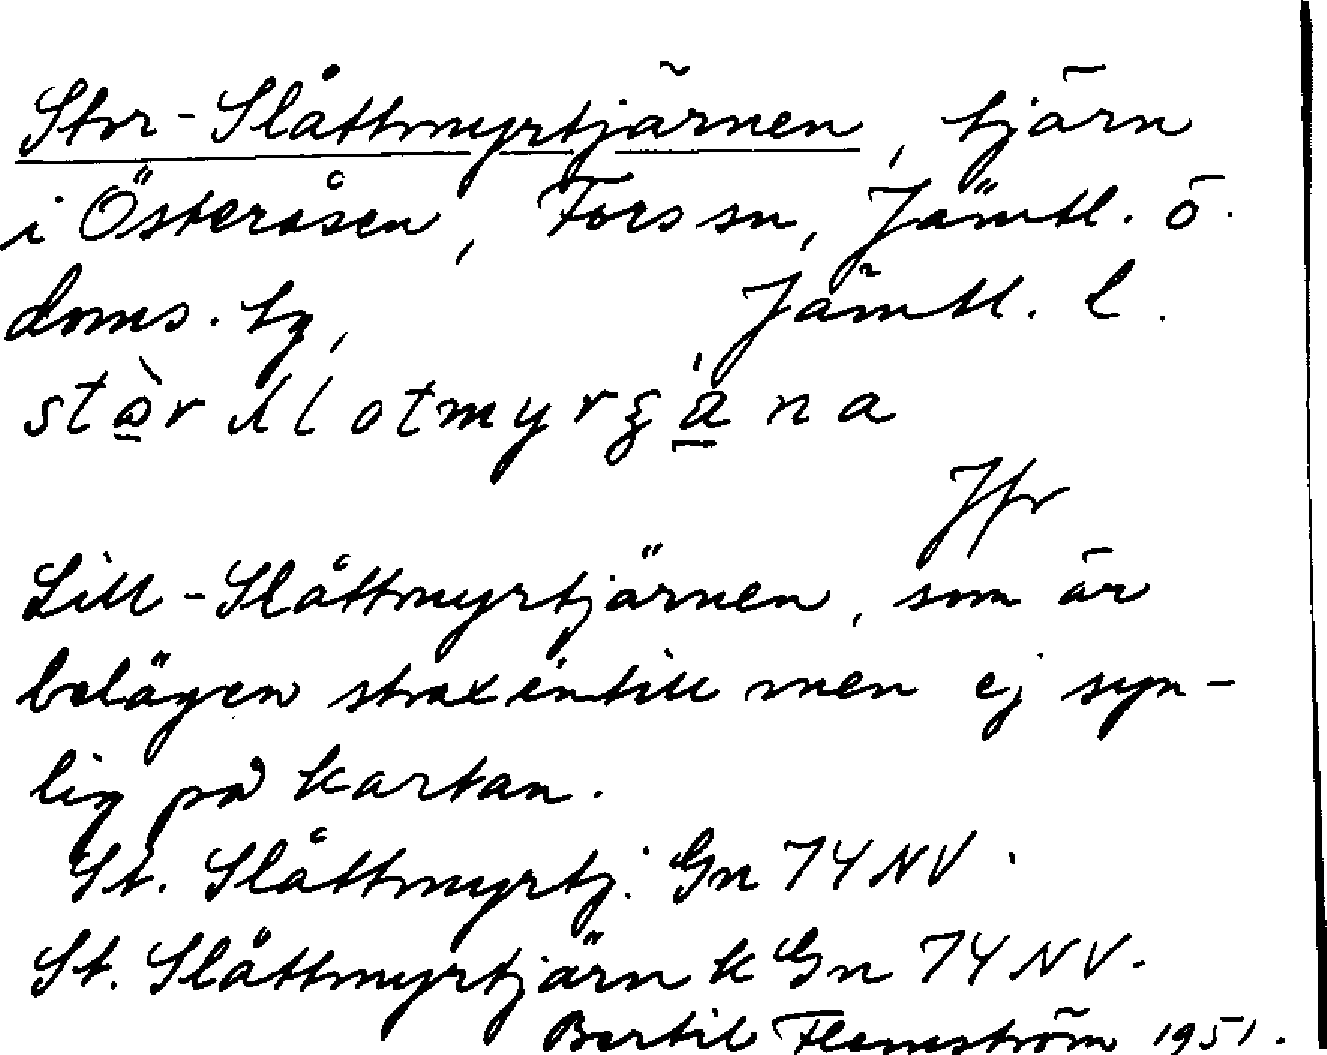 Stor-Slåttmyrtjärnen, tjärn
i Österåsen, Fors sn, Jämtl. ö.
doms. tg, Jämtl. l.
Jfr
Lill-Slåttmyrtjärnen, som är
belägen strax intill men ej syn-
lig på kartan.
St. Slåttmyrtj. Gn 74 NV.
St. Slåttmyrtjärn k Gn 74 NV.
Bertil Flemström 1951.